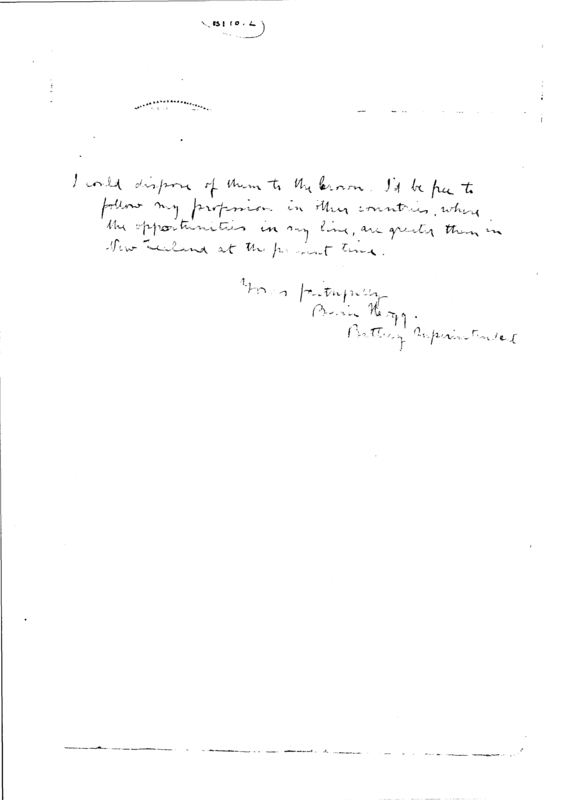 B110.2
I could dispose of them to the Crown. I'd be free to
follow my profession in other countries, where
the opportunities in my line, are greater than in
New Zealand at the present time.
Yours faithfully
Hogg.
Battery Superintendent